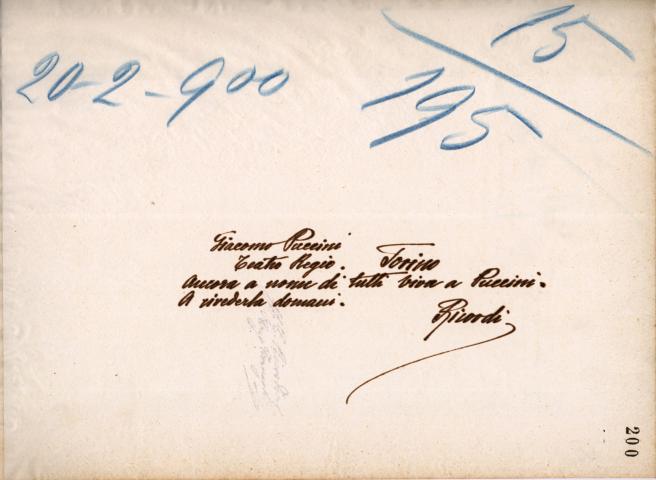 20-2-900
15
195
Giacomo Puccini
Teatro Regio. Torino
Ancora a nome di tutti viva a Puccini.
A rivederla domani.
Ricordi
200